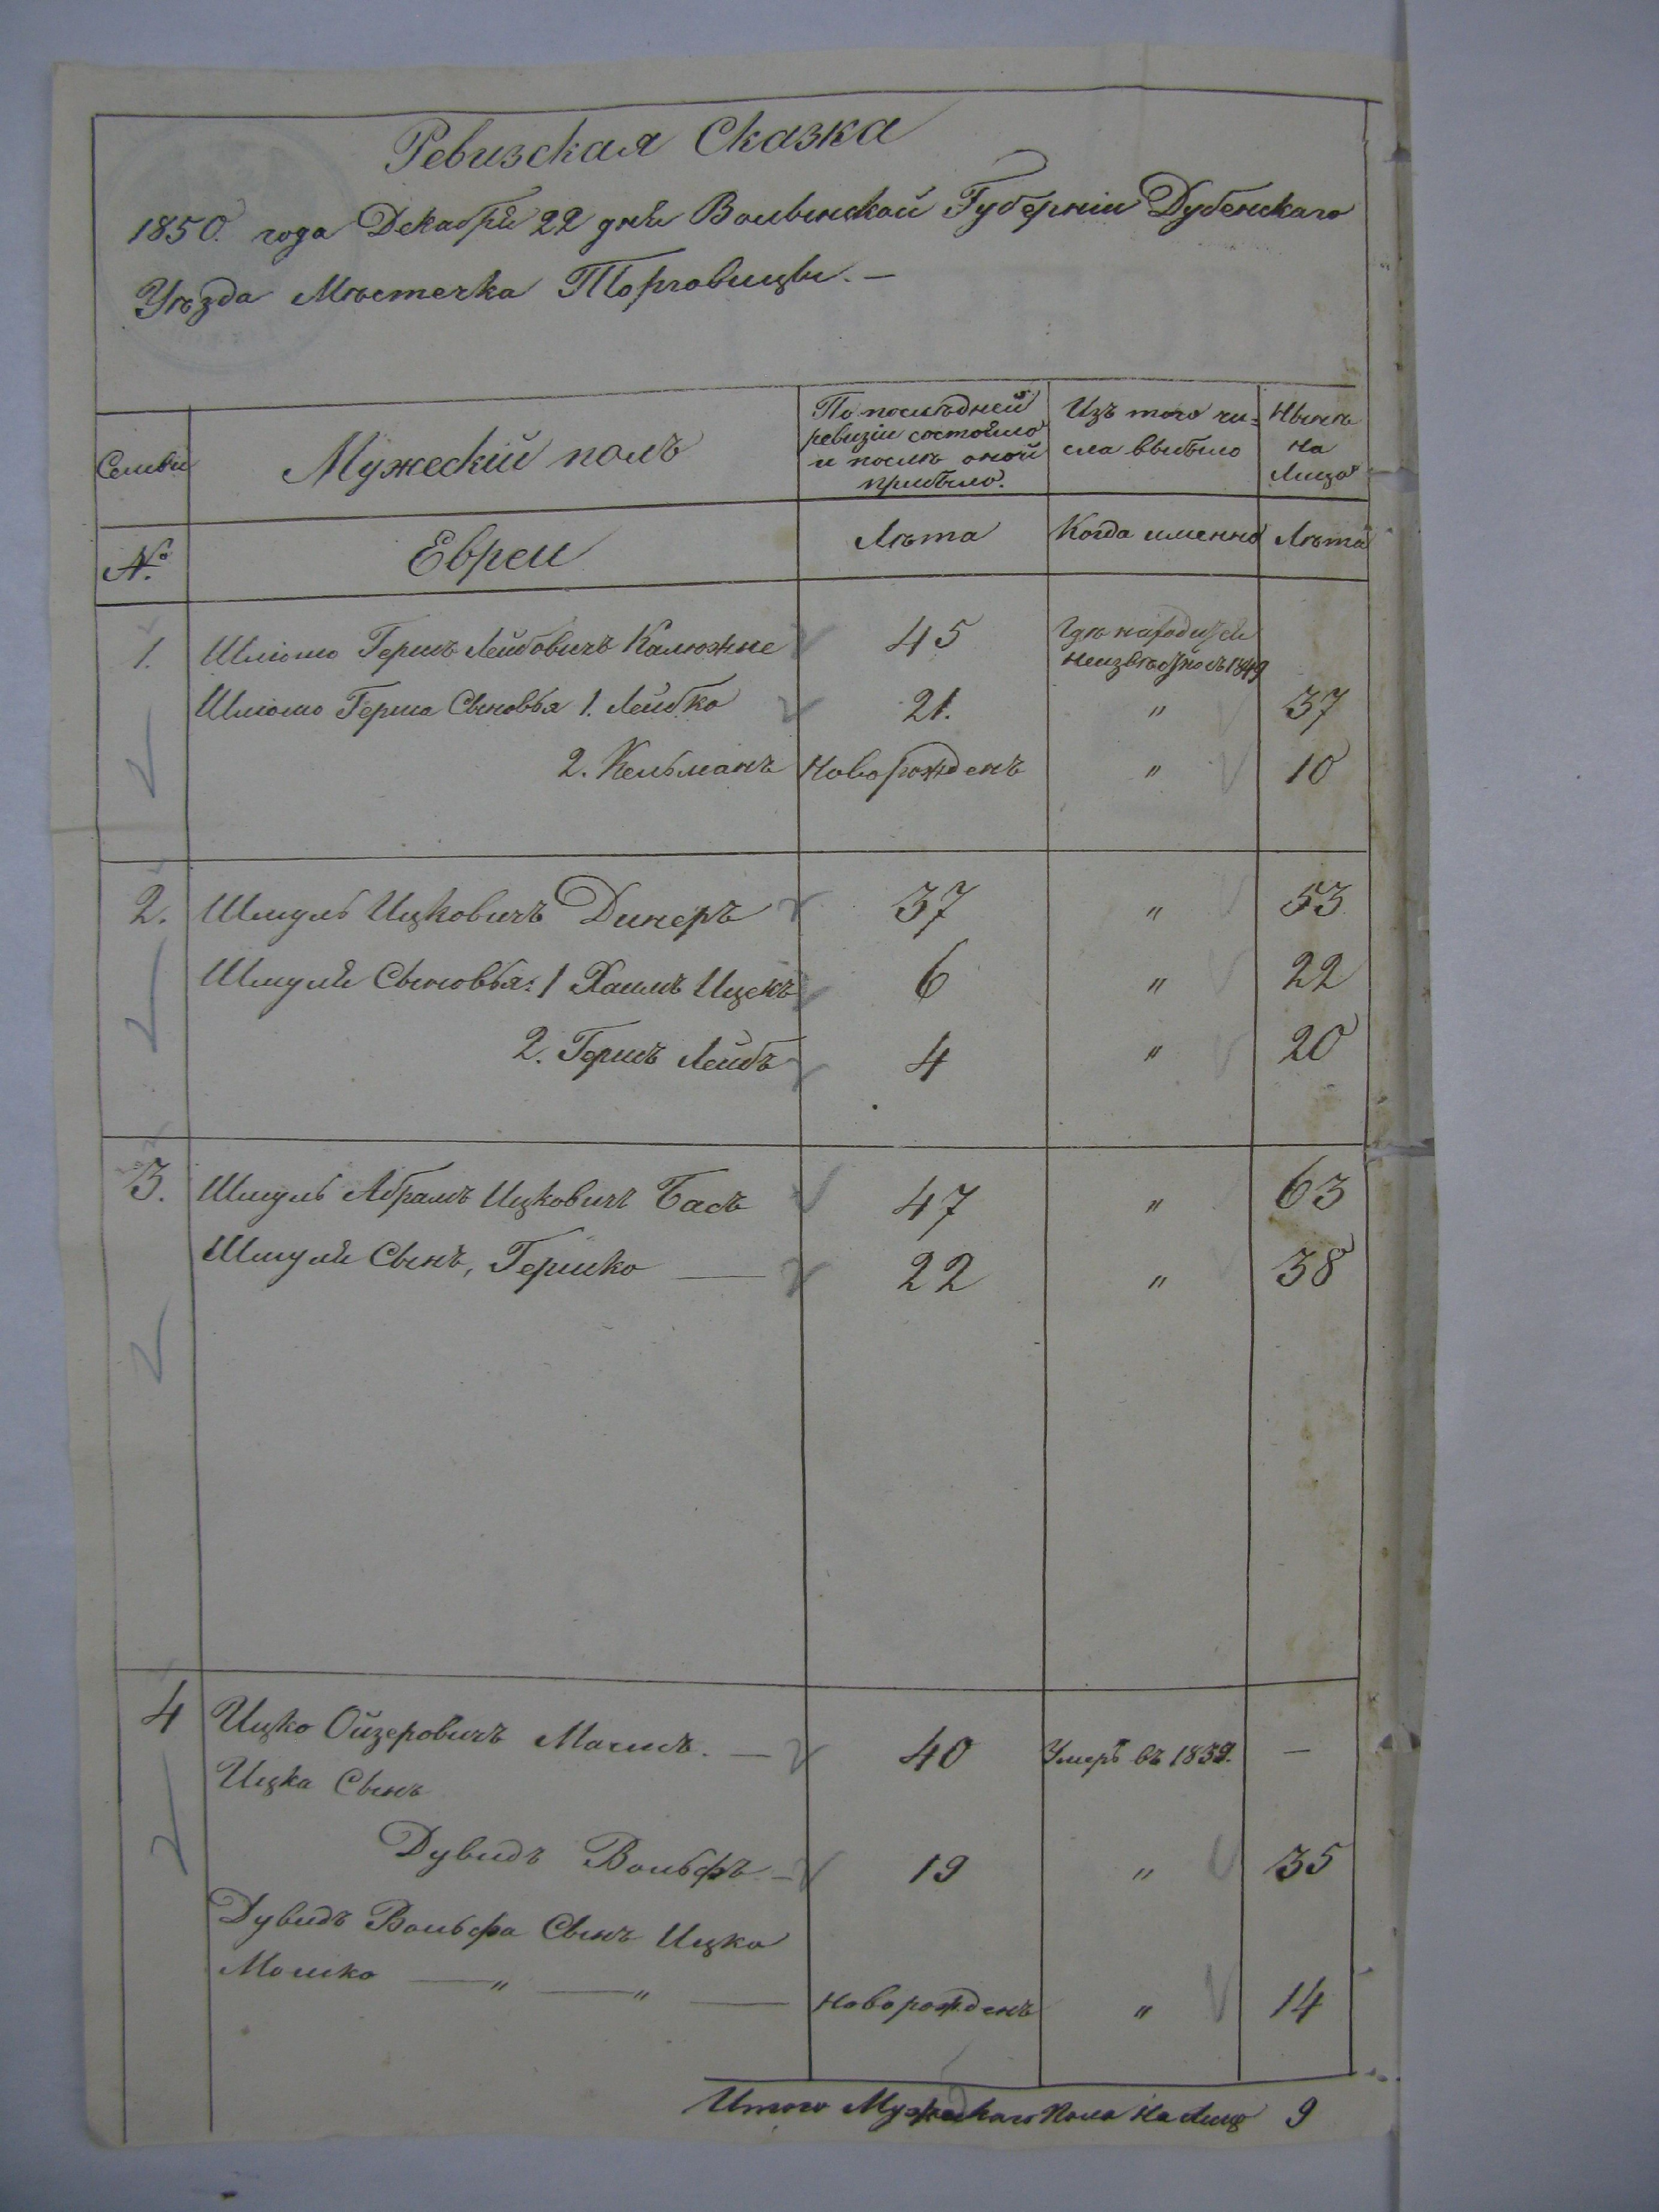 Ревизская Сказка
1850. года Декабря 22 дня Волынской Губерніи Дубенскаго
Уѣзда Мѣстечка Торговицы. —
Семьи
Мужескій полъ
По послѣдней
ревизіи состояло
и послѣ оной
прибыло.
Изъ того чи=
сла выбыло
Нынѣ
на
Лицо
№
Евреи
Лѣта
Когда именно
Лѣта
1. Шліомо Гершъ Лейбовичъ Калюжне 45 Гдѣ находится
неизвѣстно съ 1849
Шліомо Герша Сыновья 1. Лейбко 21. " 37
2. Кельманъ Новорожденъ " 10
2. Шмуль Ицковичъ Динеръ 37 " 53
Шмуля Сыновья: 1 Хаимъ Ицекъ 6 " 22
2. Гершъ Лейбъ 4 " 20
3. Шмуль Абрамъ Ицковичъ Басъ 47 " 63
Шмуля Сынъ, Гершко — 22 " 38
4 Ицко Ойзеровичъ . — 40 Умеръ въ 1839. —
Ицка Сынъ
Дувидъ Вольфъ — 19 " 35
Дувидъ Вольфа Сынъ Ицко
Мошко — " — " — Новорожденъ " 14
Итого Мужескаго Пола На Лицо 9